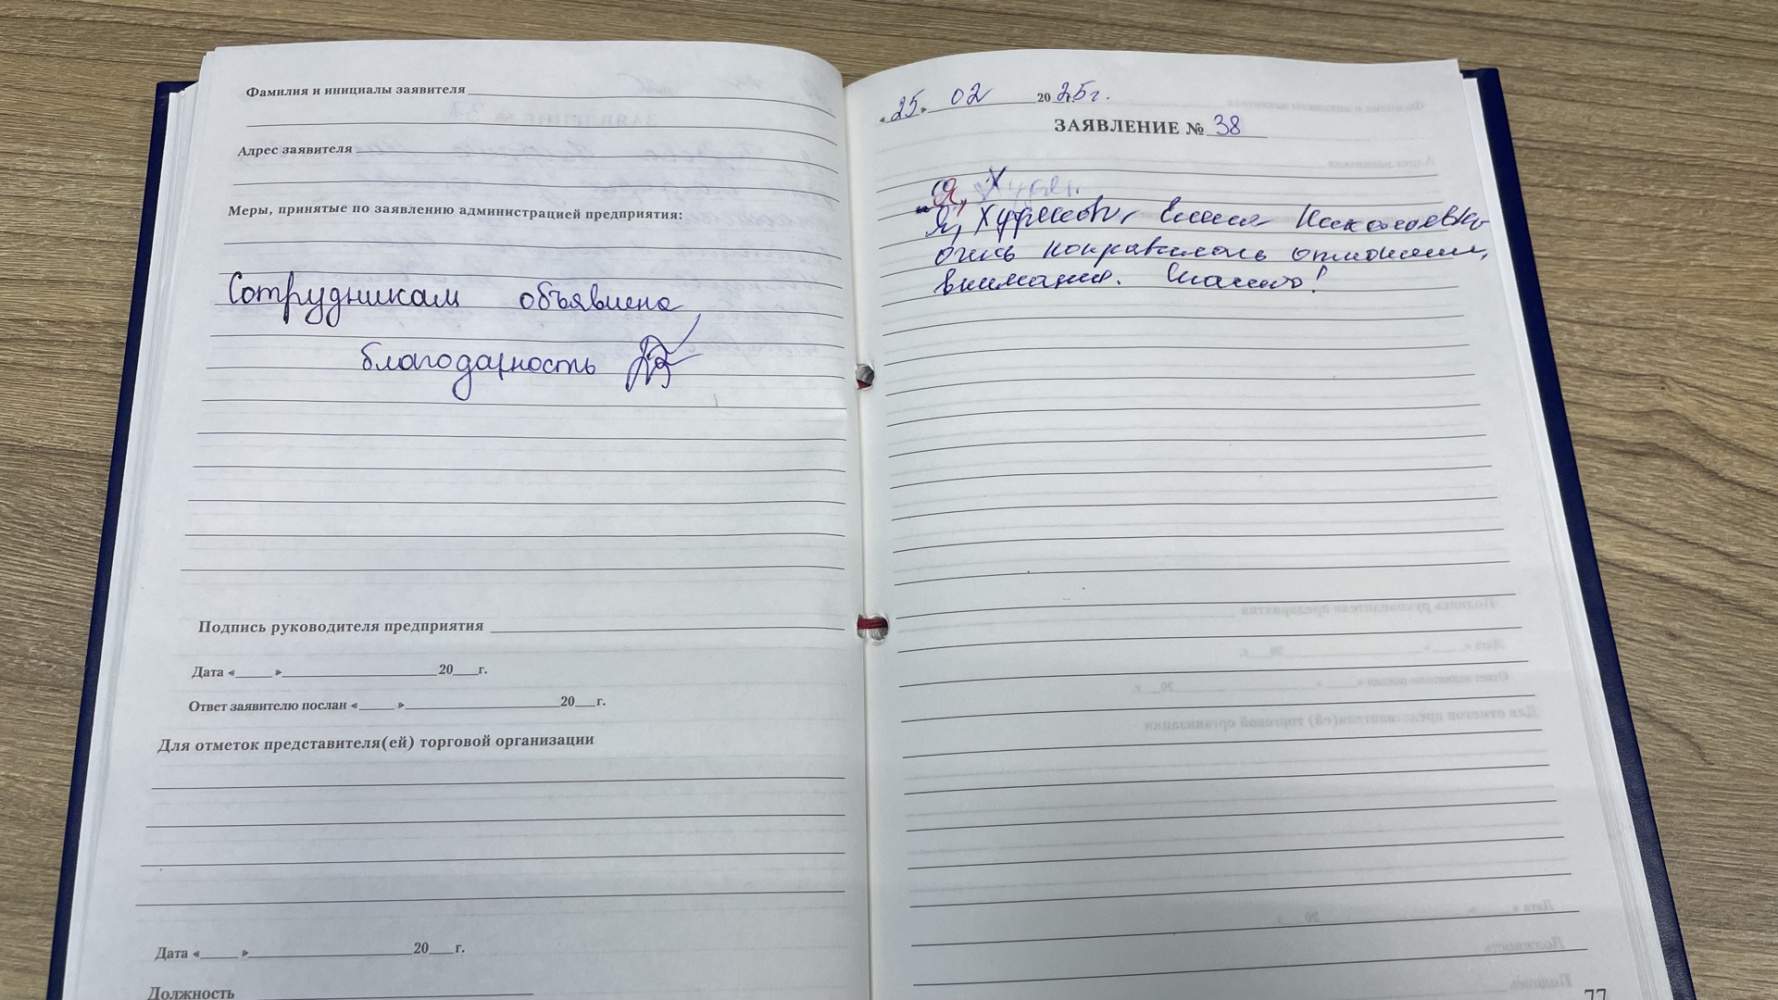 Фамилия и инициалы заявителя
Адрес заявителя
Меры, принятые по заявлению администрацией предприятия:
Сотрудникам объявлена
благодарность
Подпись руководителя предприятия
Дата «____» ____ 20__г.
Ответ заявителю послан «____» ____ 20__г.
Для отметок представителя(ей) торговой организации
Дата «____» ____ 20__г.
Должность
«25» 02 2025г.
ЗАЯВЛЕНИЕ № 38
Я, Х
Я, Николаевна
очень понравилось отношение,
внимание. Спасибо!
77